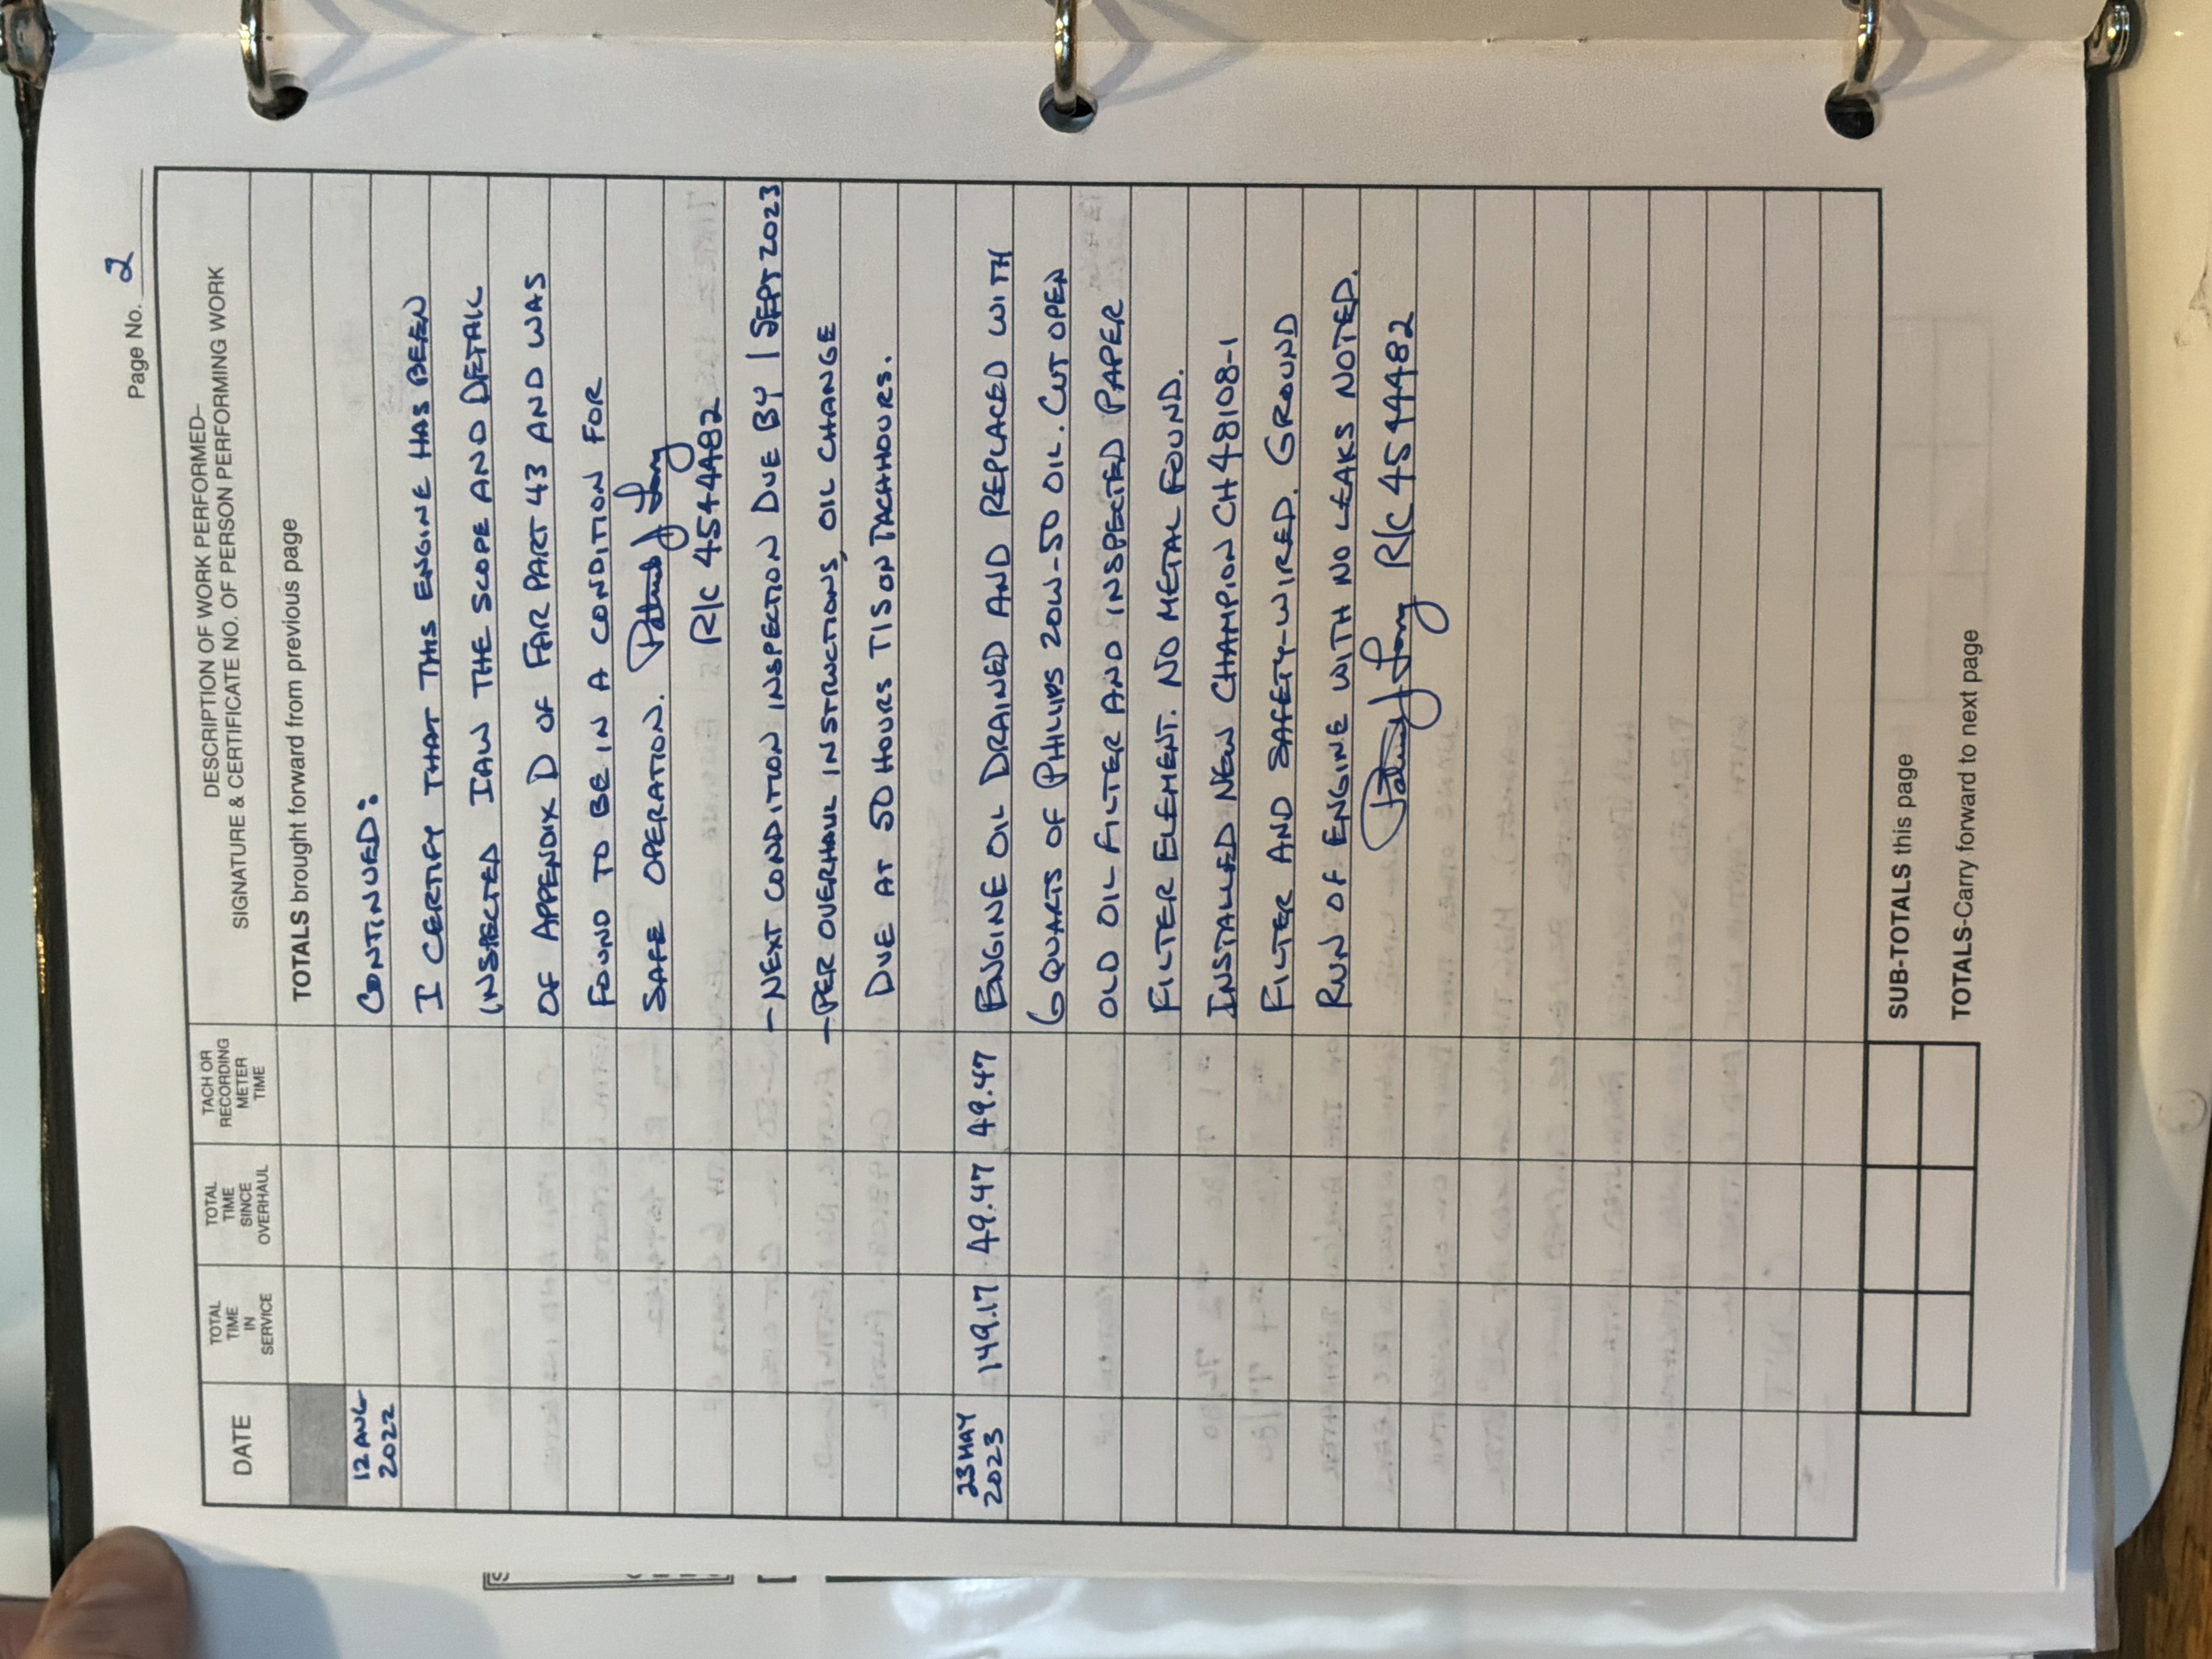 Page No. 2
DATE
TOTAL TIME IN SERVICE
TOTAL TIME SINCE OVERHAUL
TACH OR RECORDING METER TIME
DESCRIPTION OF WORK PERFORMED–
SIGNATURE & CERTIFICATE NO. OF PERSON PERFORMING WORK
TOTALS brought forward from previous page
12 AUG 2022 CONTINUED:
I CERTIFY THAT THIS ENGINE HAS BEEN
INSPECTED IAW THE SCOPE AND DETAIL
OF APPENDIX D OF FAR PART 43 AND WAS
FOUND TO BE IN A CONDITION FOR
SAFE OPERATION.
R/C 4544482
-NEXT CONDITION INSPECTION DUE BY 1 SEPT 2023
-PER OVERHAUL INSTRUCTIONS, OIL CHANGE
DUE AT 50 HOURS TIS ON TACH HOURS.
23 MAY 2023 149.17 49.47 49.47 ENGINE OIL DRAINED AND REPLACED WITH
6 QUARTS OF PHILLIPS 20W-50 OIL. CUT OPEN
OLD OIL FILTER AND INSPECTED PAPER
FILTER ELEMENT. NO METAL FOUND.
INSTALLED NEW CHAMPION CH48108-1
FILTER AND SAFETY-WIRED. GROUND
RUN OF ENGINE WITH NO LEAKS NOTED.
R/C 4544482
SUB-TOTALS this page
TOTALS-Carry forward to next page